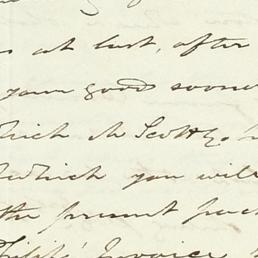 at last, after
your goods sooner
which
which you will
the present
Invoice